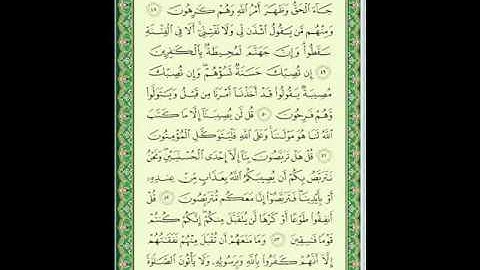 جَآءَ ٱلْحَقُّ وَظَهَرَ أَمْرُ ٱللَّهِ وَهُمْ كَـٰرِهُونَ ٤٨
وَمِنْهُم مَّن يَقُولُ ٱئْذَن لِّى وَلَا تَفْتِنِّىٓ ۚ أَلَا فِى ٱلْفِتْنَةِ
سَقَطُوا۟ ۗ وَإِنَّ جَهَنَّمَ لَمُحِيطَةٌۢ بِٱلْكَـٰفِرِينَ
٤٩ إِن تُصِبْكَ حَسَنَةٌ تَسُؤْهُمْ ۖ وَإِن تُصِبْكَ
مُصِيبَةٌ يَقُولُوا۟ قَدْ أَخَذْنَآ أَمْرَنَا مِن قَبْلُ وَيَتَوَلَّوا۟
وَّهُمْ فَرِحُونَ ٥٠ قُل لَّن يُصِيبَنَآ إِلَّا مَا كَتَبَ
ٱللَّهُ لَنَا هُوَ مَوْلَىٰنَا ۚ وَعَلَى ٱللَّهِ فَلْيَتَوَكَّلِ ٱلْمُؤْمِنُونَ
٥١ قُلْ هَلْ تَرَبَّصُونَ بِنَآ إِلَّآ إِحْدَى ٱلْحُسْنَيَيْنِ ۖ وَنَحْنُ
نَتَرَبَّصُ بِكُمْ أَن يُصِيبَكُمُ ٱللَّهُ بِعَذَابٍ مِّنْ عِندِهِۦٓ
أَوْ بِأَيْدِينَا ۖ فَتَرَبَّصُوٓا۟ إِنَّا مَعَكُم مُّتَرَبِّصُونَ ٥٢ قُلْ
أَنفِقُوا۟ طَوْعًا أَوْ كَرْهًا لَّن يُتَقَبَّلَ مِنكُمْ ۖ إِنَّكُمْ كُنتُمْ
قَوْمًا فَـٰسِقِينَ ٥٣ وَمَا مَنَعَهُمْ أَن تُقْبَلَ مِنْهُمْ نَفَقَـٰتُهُمْ
إِلَّآ أَنَّهُمْ كَفَرُوا۟ بِٱللَّهِ وَبِرَسُولِهِۦ وَلَا يَأْتُونَ ٱلصَّلَوٰةَ